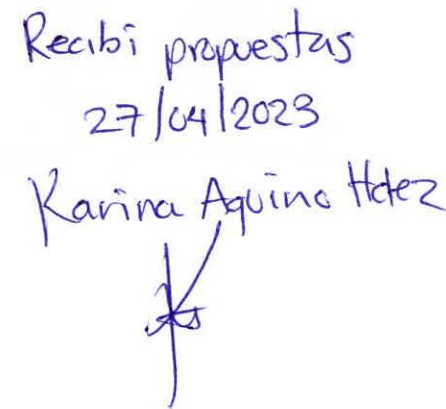 Recibi propuestas
27/04/2023
Karina Aquino Hdez